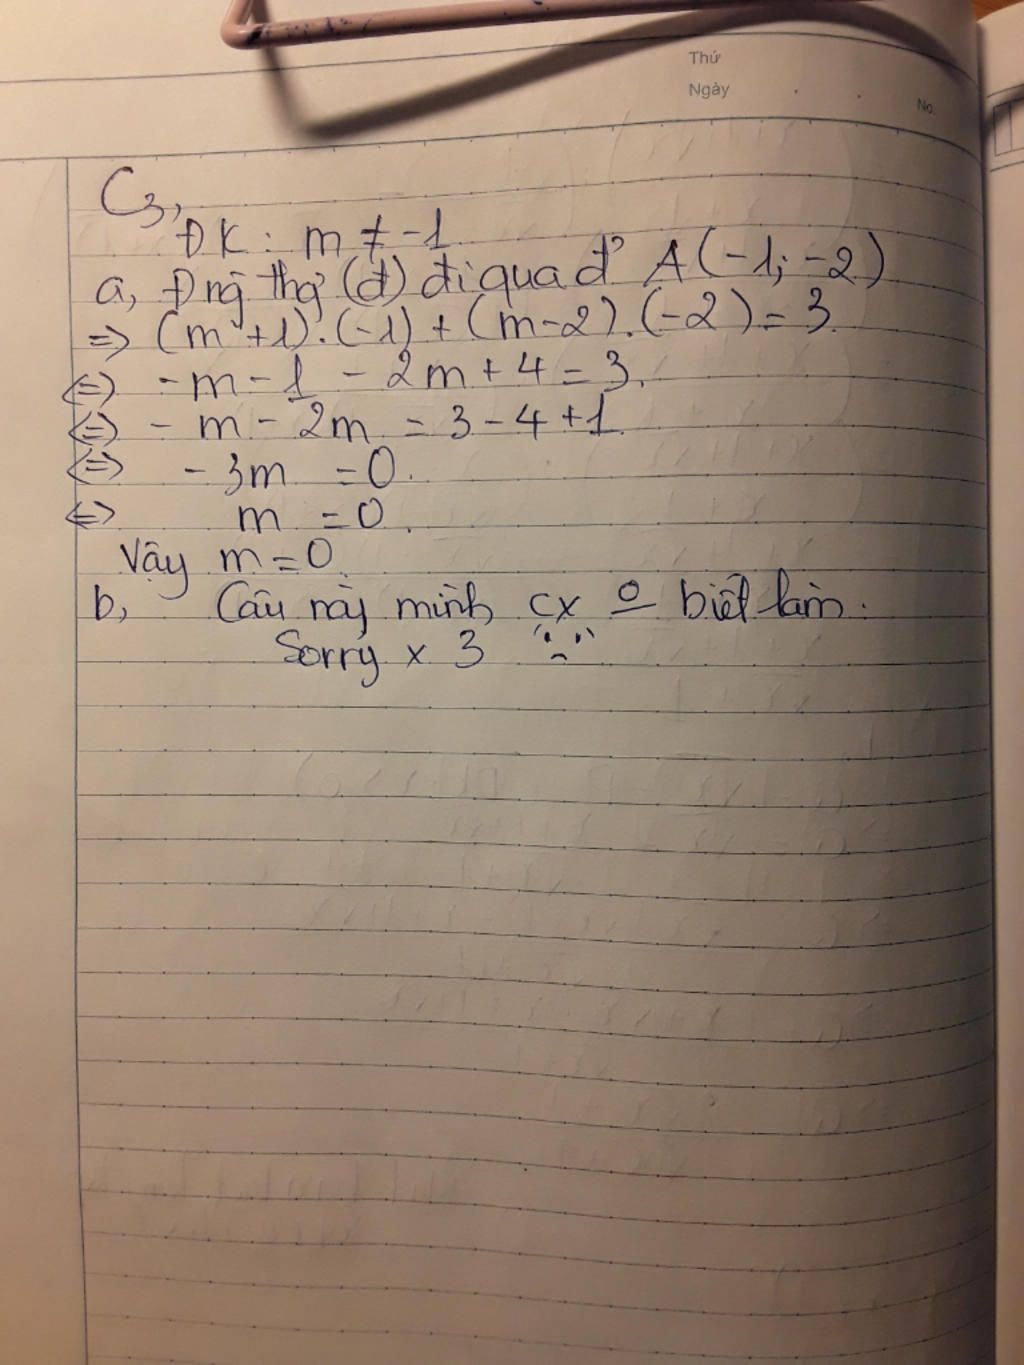 Thứ
Ngày
No.
C3,
ĐK: m ≠ -1
a, Đng thg (d) đi qua đ' A(-1; -2)
=> (m+1).(-1) + (m-2).(-2) = 3.
<=> -m - 1 - 2m + 4 = 3.
<=> - m - 2m = 3 - 4 + 1
<=> - 3m = 0.
<=> m = 0.
Vậy m = 0.
b, Câu này mình cx o biết làm.
Sorry x 3